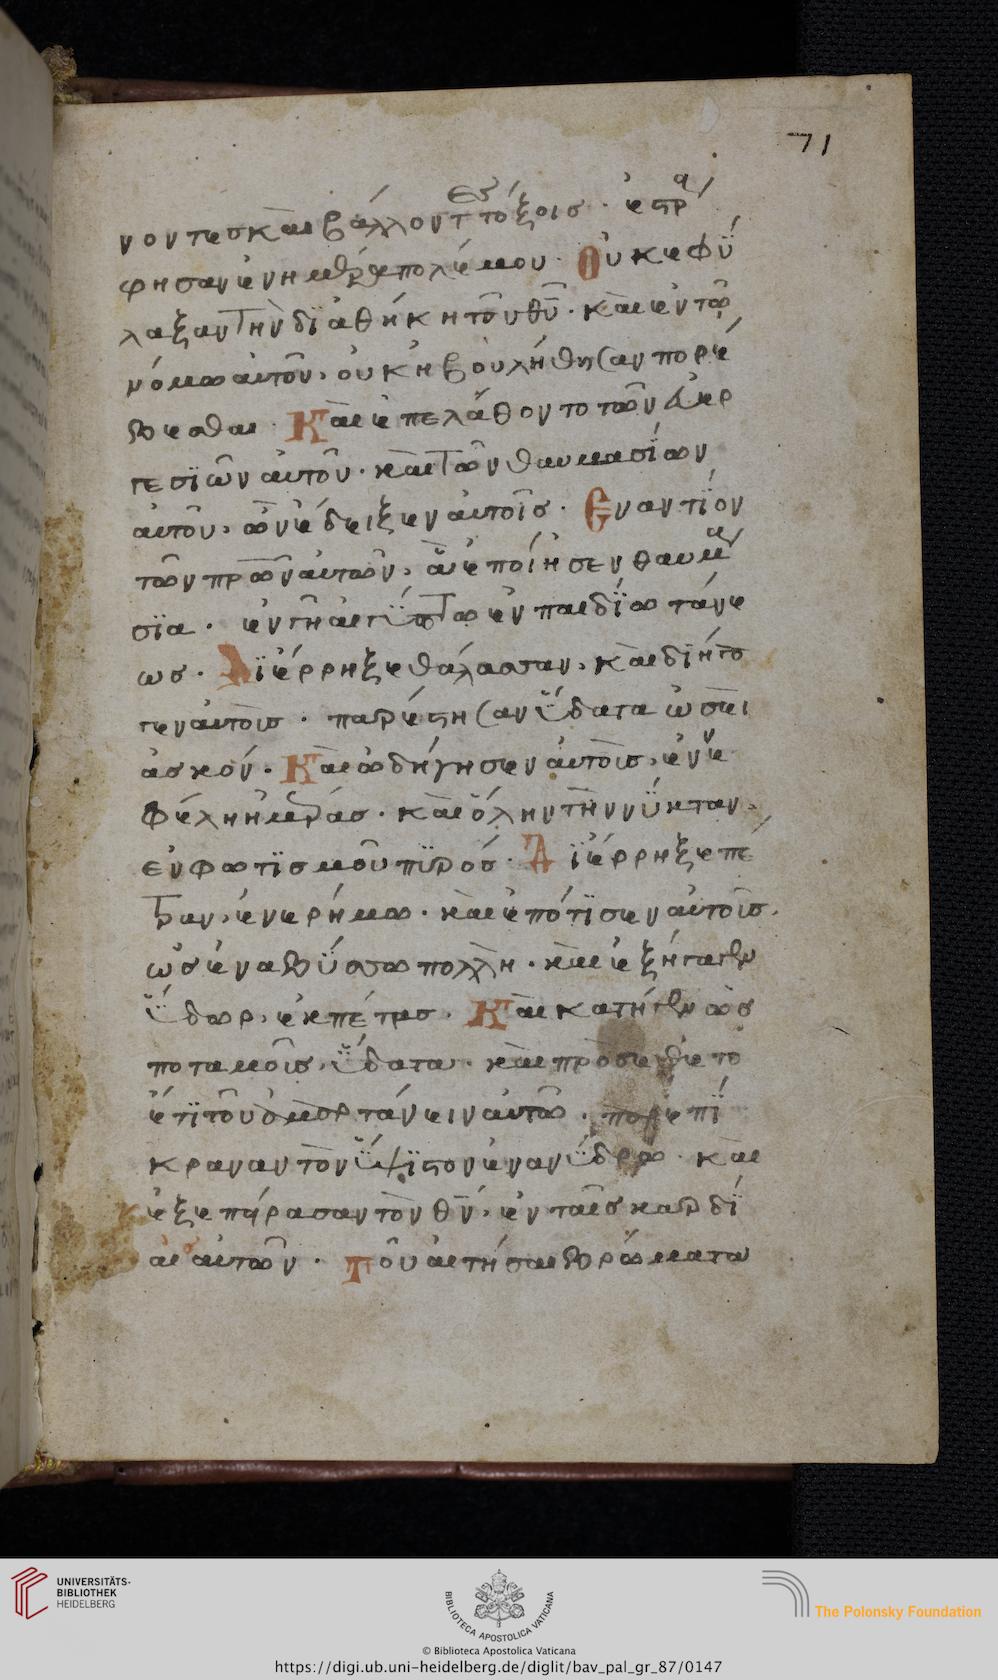 71
νοντες καὶ βάλλοντες τόξοις · ἐστρά
φησαν ἐν ημέρα πολέμου · Οὐκ εφύ
λαξαν τὴν διἀθήκη τοῦ θῦ · καὶ ἐν τῶ
νόμω αυτοῦ, οὐκ ἠβουλήθησαν πορέ
βεσθαι · Καὶ ἐπελάθοντο τῶν ἐυερ
γεσϊῶν αυτοῦ · καὶ τῶν θαυμασΐων
αὐτοῦ, ὧν ἔδειξεν αὐτοῖς · Εναντΐον
τῶν πρῶν αυτῶν, ἃ ἐποίησεν θαυμά
σϊα · ἐν γῆ αἰγΰπτω ἐν παιδΐω τάνε
ως · Δϊέρρηξε θάλασσαν, καὶ διήγα
γεν αὐτοὺς · παρέστησαν ὕδατα ὡσεὶ
ἀσκόν · Καὶ ὡδήγησεν αὐτοὺς, ἐν νε
φέλη ἡμέρας · καὶ ὅλην τὴν νΰκταν,
ἐν φωτϊσμοῦ πϋρός · Δϊέρρηξε πέ
τραν, ἐν ερήμω · καὶ ἐπότϊσεν αὐτοὺς,
ὡς ἐν αβΰσσω πολλῆ · καὶ ἐξήγαγεν
ὕδωρ, ἐκ πέτρας · Καὶ κατήγαγεν ὡς
ποταμοὺς, ὕδατα · καὶ προσέθετο
ἔτϊ τοῦ ἁμαρτάνειν αυτῶ · παρεπΐ
κραναν τὸν ὕψϊστον ἐν ανΰδρω · καὶ
ἐξεπήρασαν τὸν θν, ἐν ταῖς καρδΐ
αις αυτῶν · Τοῦ αἰτήσαι βρώματα
UNIVERSITÄTS-
BIBLIOTHEK
HEIDELBERG
BIBLIOTECA APOSTOLICA VATICANA
© Biblioteca Apostolica Vaticana
The Polonsky Foundation
https://digi.ub.uni-heidelberg.de/diglit/bav_pal_gr_87/0147